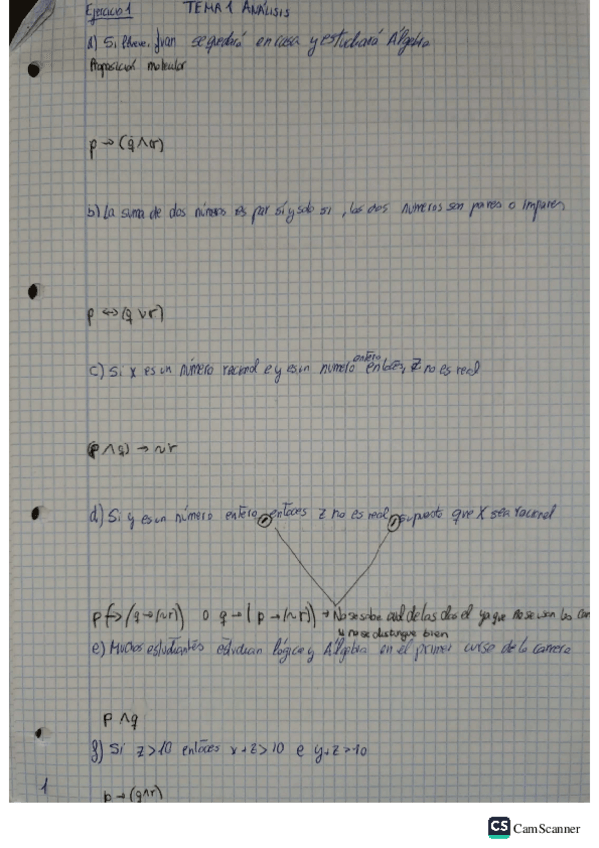 Ejercicio 1 TEMA 1 ANÁLISIS
a) Si llueve, Juan se quedará en casa y estudiará Álgebra
Proposición molecular
p → (q ∧ r)
b) La suma de dos números es par si y solo si, los dos números son pares o impares
p ↔ (q ∨ r)
c) Si x es un número racional e y es un número entero entonces, z no es real
(p ∧ q) → ~r
d) Si y es un número entero entonces z no es real supuesto que X sea racional
p → (q → (~r)) o q → (p → (~r)) → No se sabe cual de las dos el ya que no se ven las
y no se distingue bien
e) Muchos estudiantes estudian lógica y Álgebra en el primer curso de la carrera
p ∧ q
f) Si z > 10 entonces x + z > 10 e y + z > 10
1
p → (q ∧ r)
CS CamScanner